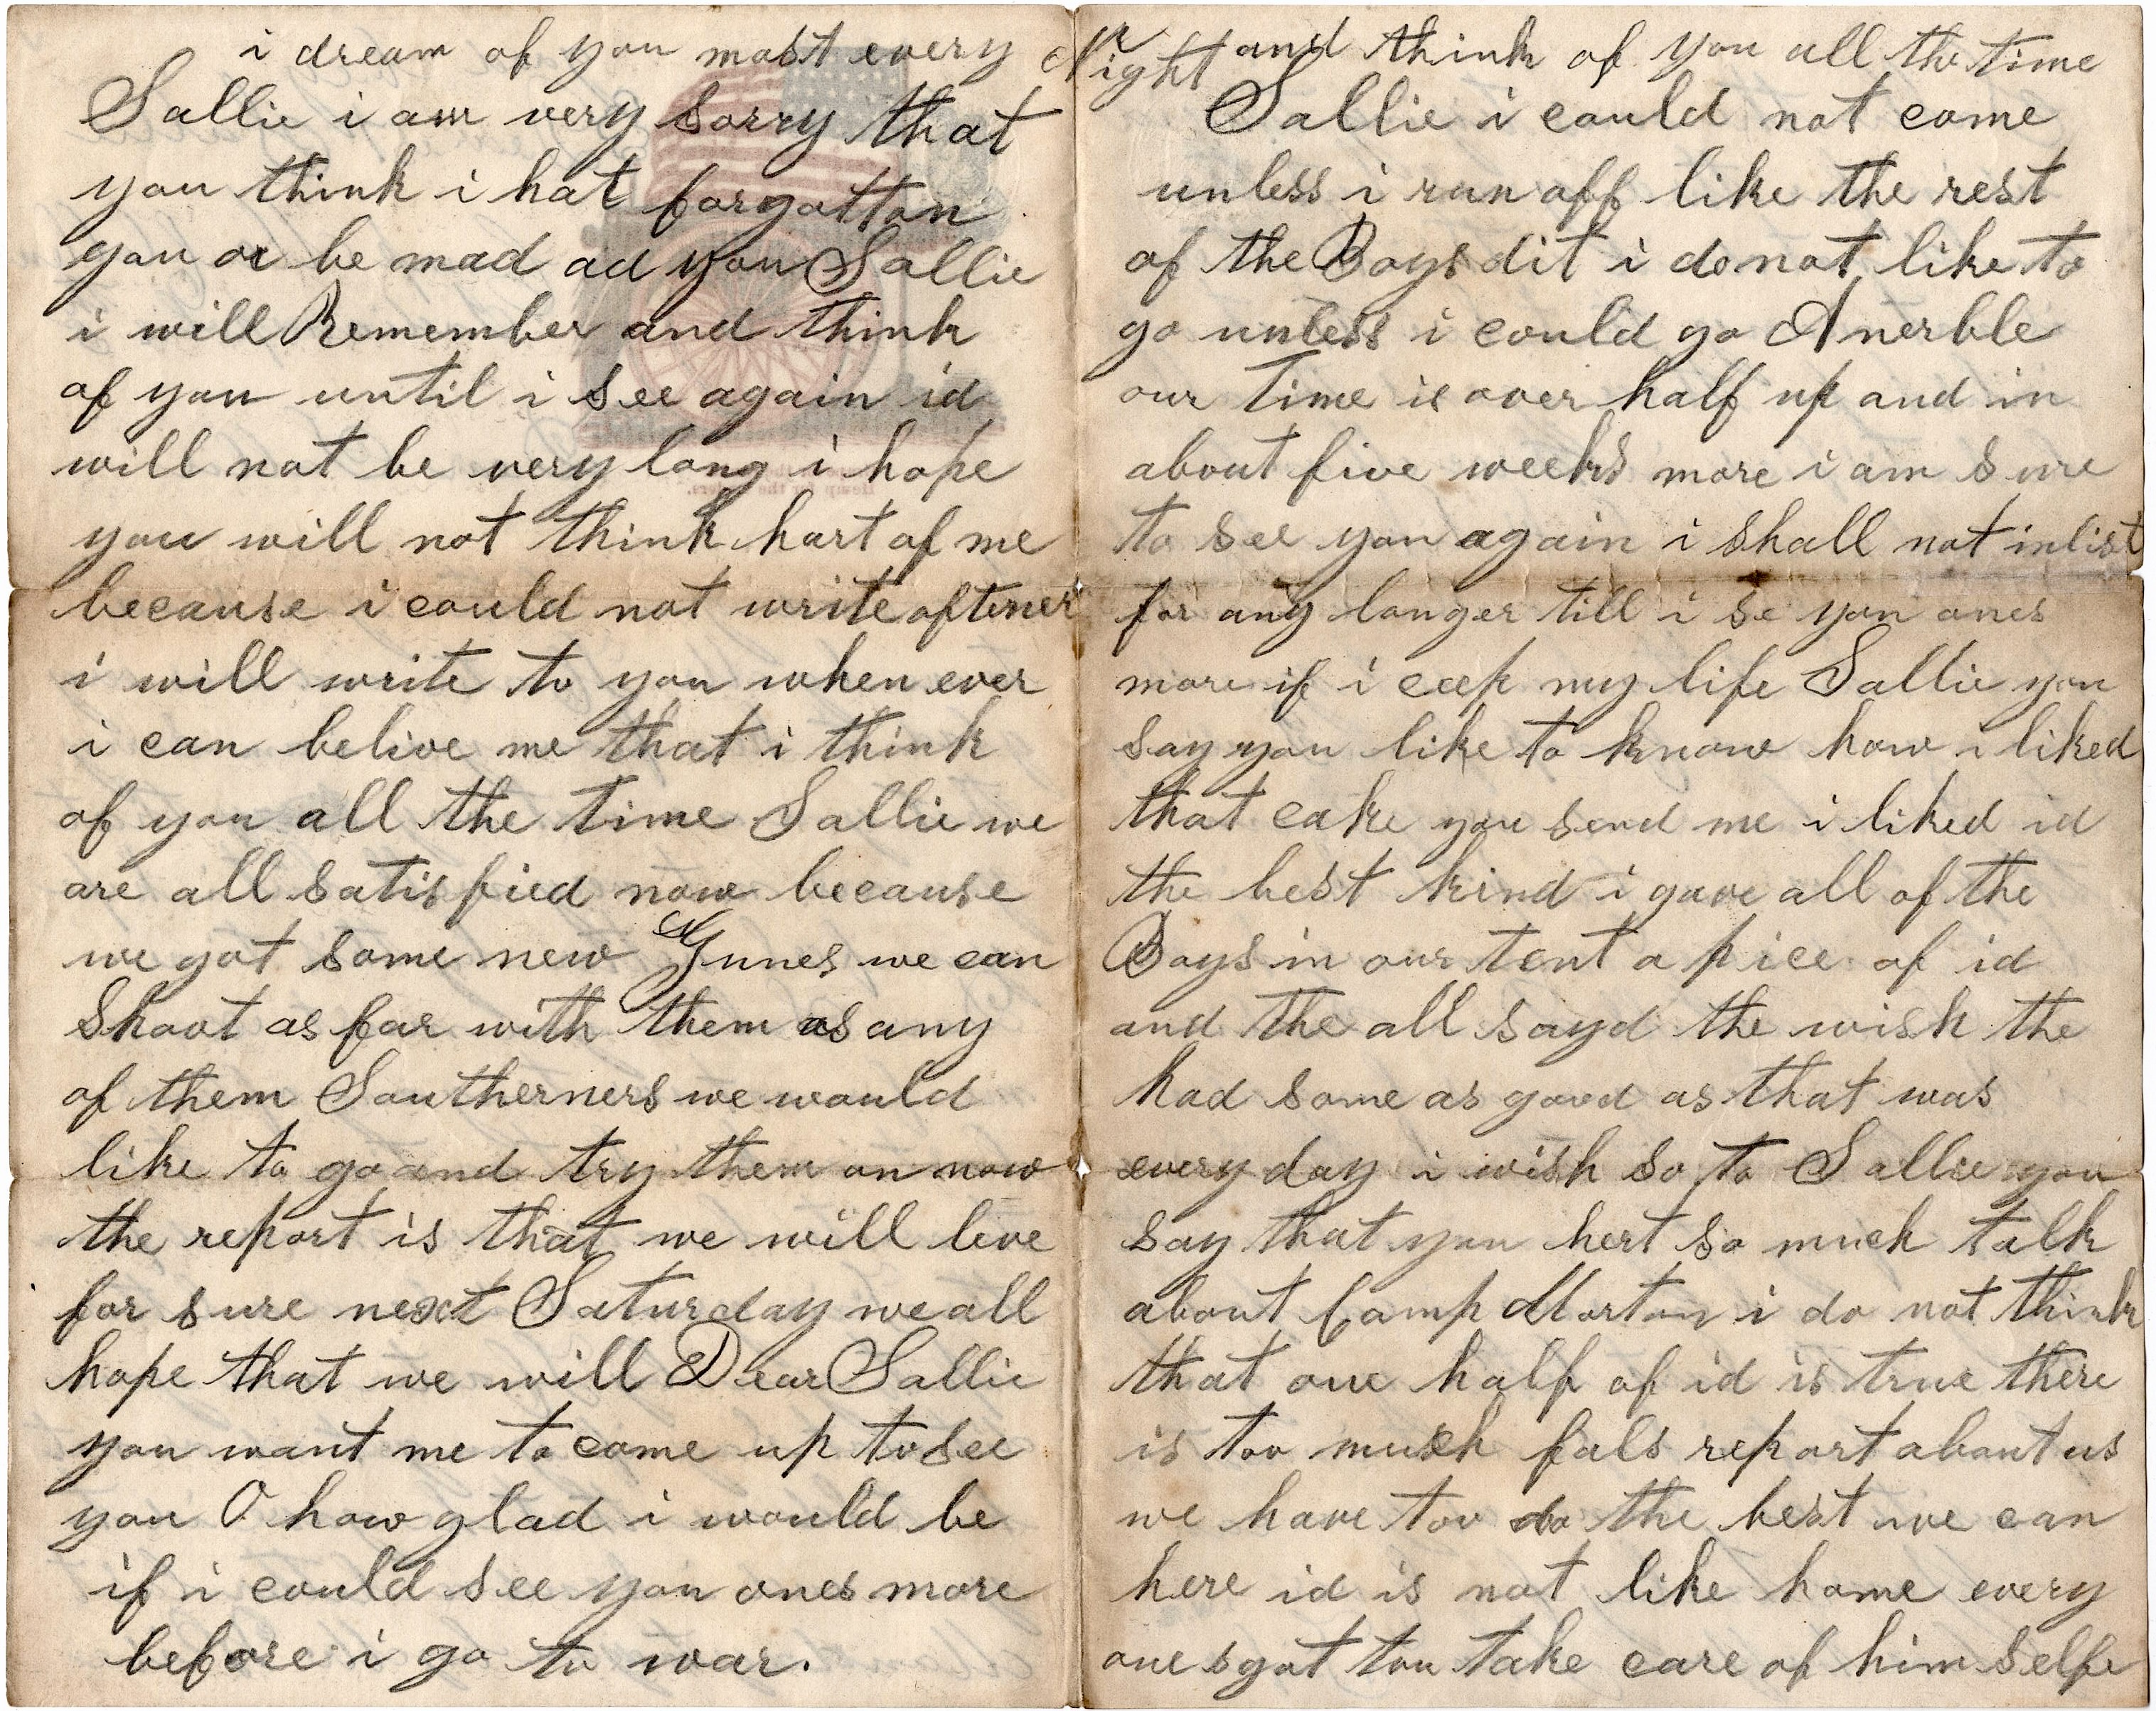 i dream of you most every Night and think of you all the time
Sallie i am very sorry that
you think i hat forgotton
you or be mad ad you Sallie
i will Remember and think
of you until i see again id
will not be very long i hope
you will not think hart of me
because i could not write oftener
i will write to you when ever
i can belive me that i think
of you all the time Sallie we
are all satisfied now because
we got some new Gunes we can
Shoot as far with them as any
of them Southerners we would
like to go and try them on now
the report is that we will leve
for sure next Saturday we all
hope that we will Dear Sallie
you want me to come up to see
you O how glad i would be
if i could see you ones more
before i go to war.
Sallie i could not come
unless i run off like the rest
of the Boys dit i do not like to
go unless i could go Anerble
our Time is over half up and in
about five weeks more i am sure
to see you again i shall not inlist
for any longer till i se you ones
more if i ceep my life Sallie you
say you like to know how i liked
that cake you send me i liked id
the best kind i gave all of the
Boys in our tent a pice of id
and the all sayd the wish the
had some as good as that was
every day i wish so to Sallie you
say that you hert so much talk
about Camp Morton i do not think
that one half of id is true there
is too much fals report about us
we have too do the best we can
here id is not like home every
ones got too take care of him selfe